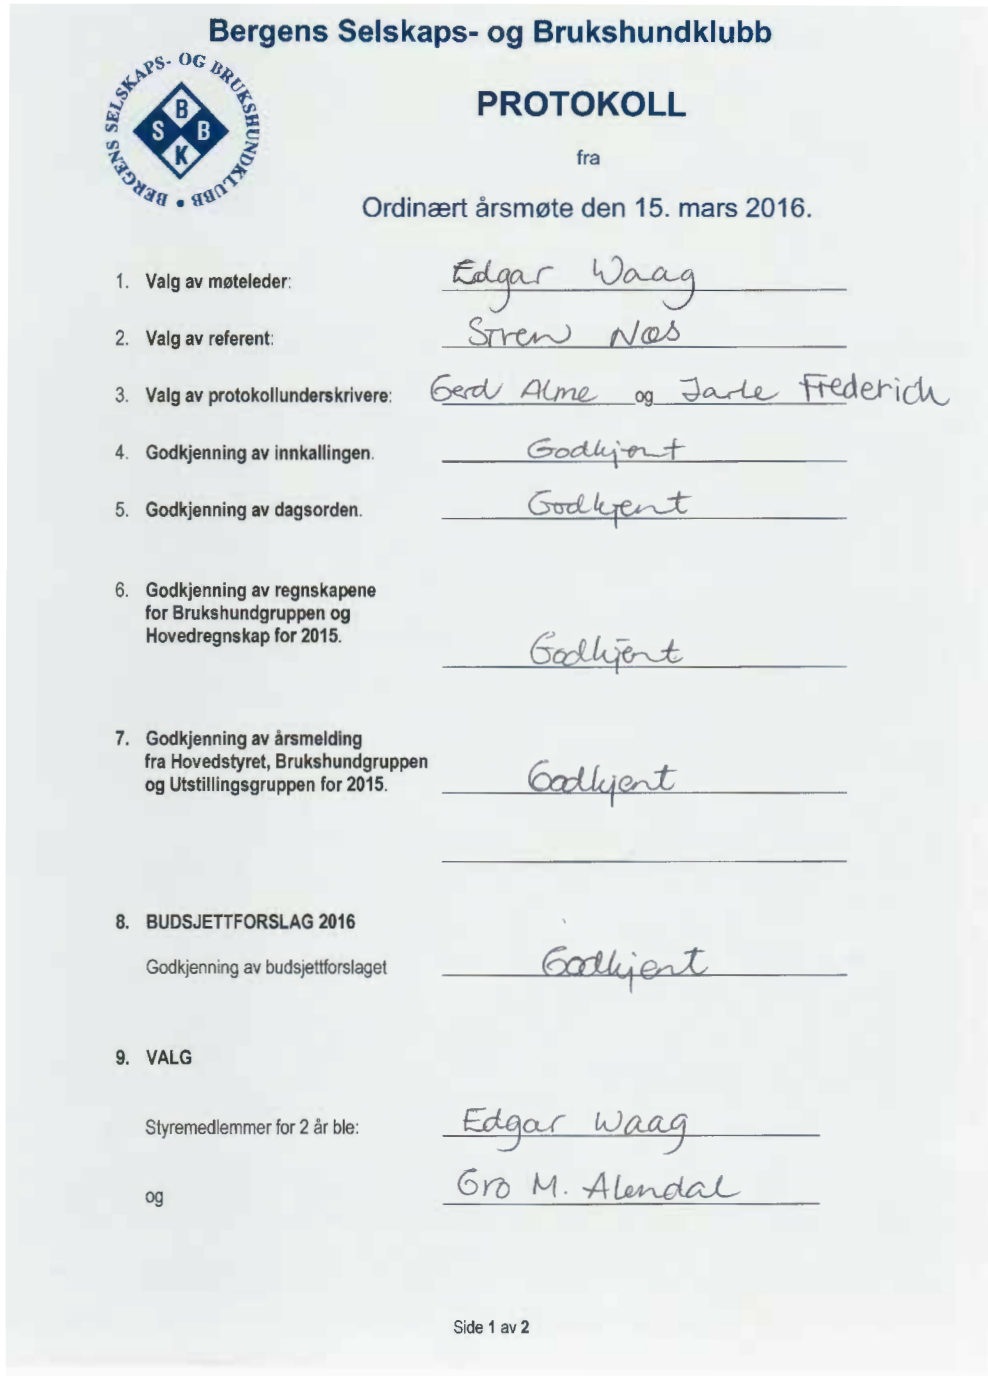 Bergens Selskaps- og Brukshundklubb
BERGENS SELSKAPS- OG BRUKSHUNDKLUBB •
B
S B
K
PROTOKOLL
fra
Ordinært årsmøte den 15. mars 2016.
1. Valg av møteleder: Edgar Waag
2. Valg av referent: Næs
3. Valg av protokollunderskrivere: Gerd Alme og Jarle Frederich
4. Godkjenning av innkallingen. Godkjent
5. Godkjenning av dagsorden. Godkjent
6. Godkjenning av regnskapene
for Brukshundgruppen og
Hovedregnskap for 2015.
Godkjent
7. Godkjenning av årsmelding
fra Hovedstyret, Brukshundgruppen
og Utstillingsgruppen for 2015. Godkjent
8. BUDSJETTFORSLAG 2016
Godkjenning av budsjettforslaget Godkjent
9. VALG
Styremedlemmer for 2 år ble: Edgar Waag
og Gro M. Alendal
Side 1 av 2